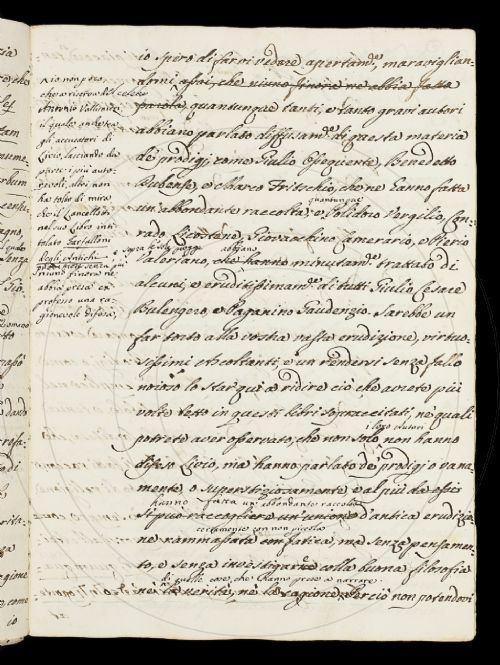 io spero di farvi vedere apertam.te, maraviglian-
domi assai, che niuno finora ne abbia fatta
parola, quantunque tanti, e tanto gravi autori
abbiano parlato diffusam.te di questa materia
de' prodigj, come Giulio Obsequente, Benedetto
e Marco Fritschio, che ne hanno fatta
quantunque
un'abbondante raccolta, e Polidoro Vergilio, Con-
rado Licostene, Giovacchino Camerario, e Pierio
sopra le dette piogge abbiano
Valeriano, che hanno minutam.te trattato di
alcuni, e eruditissimam.te di tutti Giulio Cesare
Bulengero, e Paganino Gaudenzio. Sarebbe un
far torto alla vostra vasta erudizione, virtuo-
sissimi Ascoltanti, e un rendervi senza fallo
noioso lo star qui a ridire ciò, che avete più
volte letto in questi libri sopraccitati, ne' quali
i loro Autori
potrete aver osservato, che non solo non hanno
difeso Livio, ma hanno parlato de' prodigj o vana-
mente, o superstiziosamente, e al più da essi
hanno fatta un'abbondante raccolta
si può raccogliere un d'antica erudizio-
certamente con non piccola
ne rammassata con fatica, ma senza pensamen-
to, e senza investigarne colla buona filosofia
di quelle cose, che hanno prese a narrare.
nè la verità, nè la ragione. Perciò non potendovi
io non però,
che a riserva del celebre
Antonio Vallisnieri
il quale ad esta
gli accusatori di
Livio, lasciando da
parte i più auto-
revoli, altri non
ha tolto di mira
che il Lancellotti
nel suo Libro inti-
tolato Farfalloni
degli Antichi
niuno finora ne
abbia presa ex
professo una ra-
gionevole difesa,
io